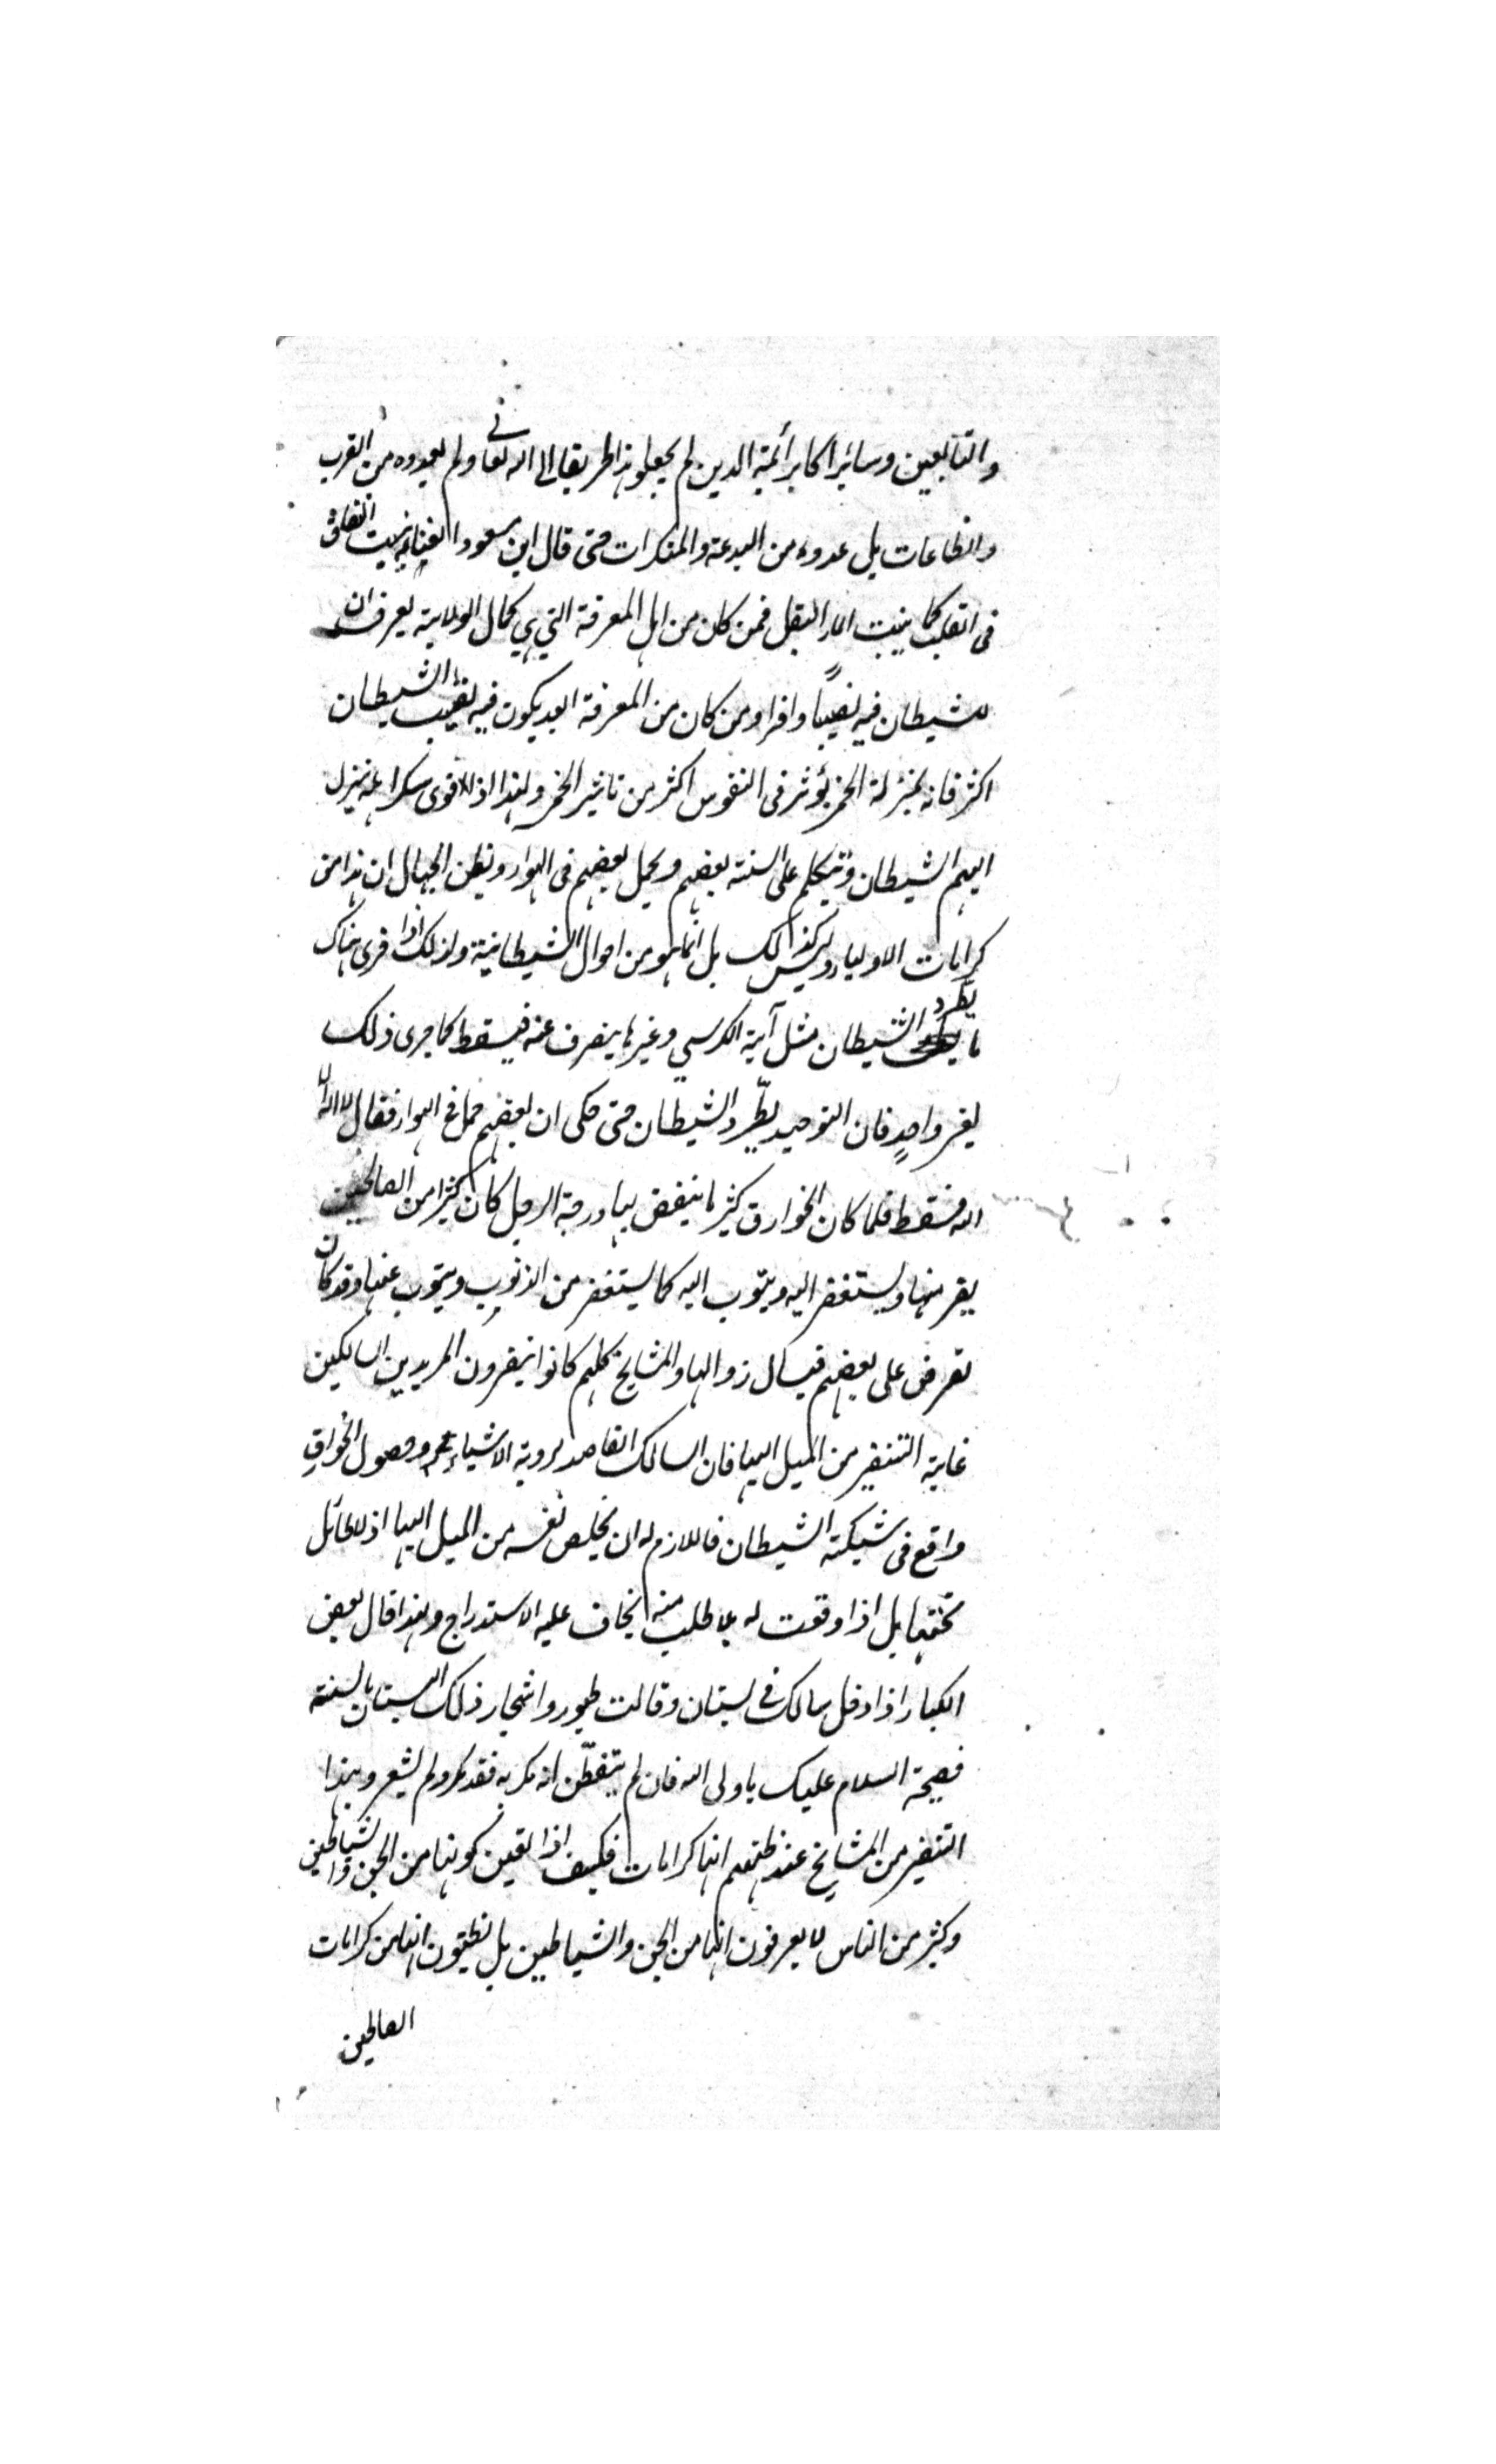 والتابعين وسائر اكابر ائمة الدين لم يجعلوا هذا طريقا الى الله تعالى ولم يعدوه من القرب
والطاعات بل عدوه من البدعة والمنكرات حتى قال ابن مسعود الغناء ينبت النفاق
فى القلب كما ينبت الماء البقل فمن كان من اهل المعرفة التي هي كمال الولاية يعرف ان
للشيطان فيه نصيبًا وافرا ومن كان من المعرفة ابعد يكون فيه نصيب الشيطان
اكثر فانه بمنزلة الخمر يؤثر فى النفوس اكثر من تاثير الخمر ولهذا اذا قوى سكر اهله تنزل
اليهم الشيطان وتتكلم على السنة بعضهم ويحمل بعضهم فى الهواء ويظن الجهال ان هذا من
كرامات الاولياء وليس كذالك بل انما هو من احوال الشيطانية ولذلك اذا قرى هناك
ما يطرد الشيطان مثل آية الكرسي وغيرها ينصرف عنه فيسقط كما جرى ذلك
لغير واحدٍ فان التوحيد يطّرد الشيطان حتى حكى ان بعضهم حمل فى الهواء فقال لا اله الا
الله فسقط فلما كان الخوارق كثير ما ينقض بها درجة الرجل كان كثيرا من الصالحين
يفر منها ويستغفر اليه ويتوب اليه كما يستغفر من الذنوب ويتوب عنها وقد كان
تعرض على بعضهم فيسال زوالها والمشايخ كلهم كانوا ينفرون المريدين السالكين
غاية التنفير من الميل اليها فان السالك القاصد لروية الاشياء وحصول الخوارق
واقع فى شبكة الشيطان فاللازم له ان يخلص نفسه من الميل اليها اذ لا طائل
تحتها بل اذا وقعت له بلا طلب منه يخاف عليه الاستدراج ولهذا قال بعض
الكبار اذا دخل سالك فى بستان وقالت طيور واشجار ذلك البستان بالسنة
فصيحة السلام عليك يا ولى الله فان لم يتفطّن انه مكر به فقد مكر ولم يشعر وهذا
التنفير من المشايخ عند ظنهم انها كرامات فكيف اذا تيقن كونها من الجن والشياطين
وكثير من الناس لا يعرفون انها من الجن والشياطين بل يظنون انها من كرامات
الصالحين